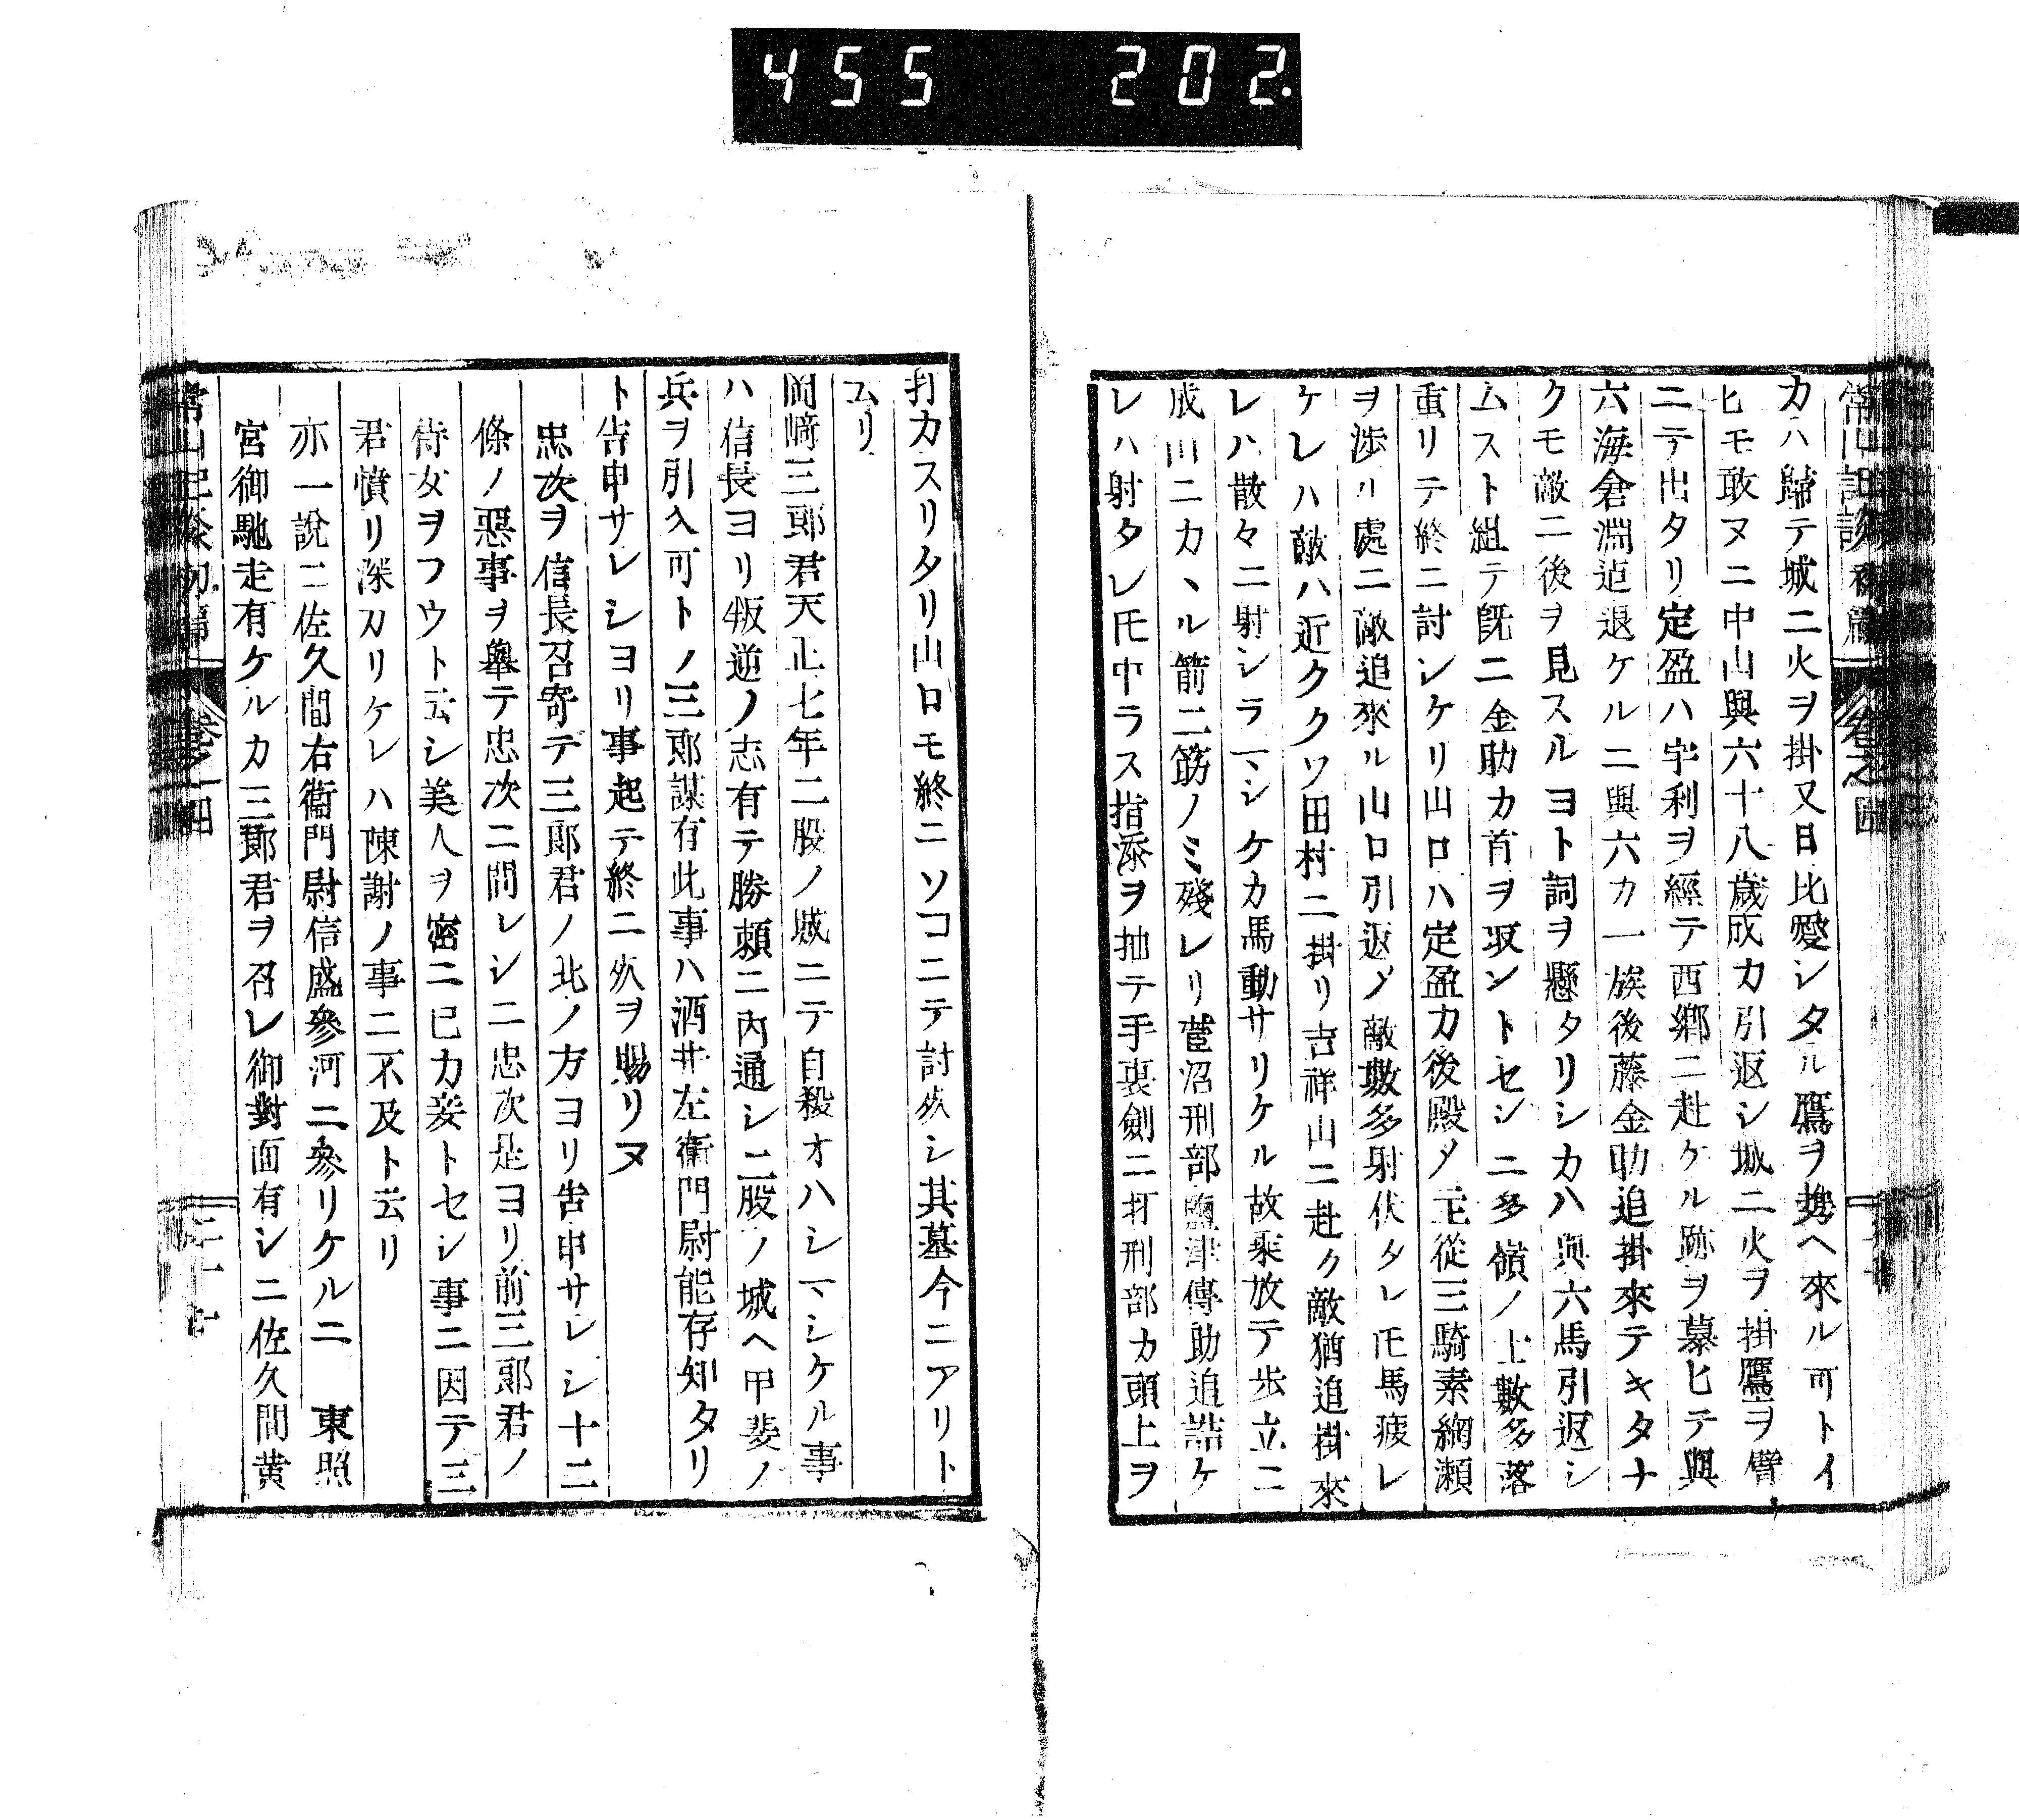 455 202.
常山記談初篇 卷之四
カハ歸テ城ニ火ヲ掛又日比愛シタル鷹ヲ携ヘ來ル可トイ
ヒモ敢ヌニ中山與六十八歳成カ引返シ城ニ火ヲ掛鷹ヲ臂
ニテ出タリ定盈ハ宇利ヲ經テ西郷ニ赴ケル跡ヲ慕ヒテ與
六海倉淵迠退ケルニ與六カ一族後藤金助追掛來テキタナ
クモ敵ニ後ヲ見スルヨト詞ヲ懸タリシカハ與六馬引返シ
ムスト組テ既ニ金助カ首ヲ取ントセシニ多嶺ノ士數多落
重リテ終ニ討ンケリ山口ハ定盈カ後殿メ主從三騎素綱瀬
ヲ渉ル處ニ敵追來ル山口引返メ敵數多射伏タレ𪜈馬疲レ
ケレハ敵ハ近ククソ田村ニ掛リ吉祥山ニ赴ク敵猶追掛來
レハ散々ニ射シラマシケカ馬動サリケル故乘放テ歩立ニ
成川ニカヽル箭二筋ノミ殘レリ菅沼刑部鹽津傳助追詰ケ
レハ射タレ𪜈中ラス指添ヲ抽テ手裏劍ニ打刑部カ頭上ヲ
打カスリタリ山口モ終ニソコニテ討死シ其墓今ニアリト
云リ
岡﨑三郎君天正七年二股ノ城ニテ自殺オハシマシケル事
ハ信長ヨリ叛逆ノ志有テ勝頼ニ内通シ二股ノ城ヘ甲斐ノ
兵ヲ引入可トノ三郎謀有此事ハ酒井左衞門尉能存知タリ
ト告申サレシヨリ事起テ終ニ死ヲ賜リヌ
忠次ヲ信長召寄テ三郎君ノ北ノ方ヨリ告申サレシ十二
條ノ惡事ヲ擧テ忠次ニ問レシニ忠次是ヨリ前三郎君ノ
侍女ヲフウト云シ美人ヲ密ニ己カ妾トセシ事ニ因テ三
君憤リ深カリケレハ陳謝ノ事ニ不及ト云リ
亦一說ニ佐久間右衞門尉信盛參河ニ參リケルニ 東照
宮御馳走有ケルカ三郎君ヲ召レ御對面有シニ佐久間黄
常山記談初篇 卷之四 二十七